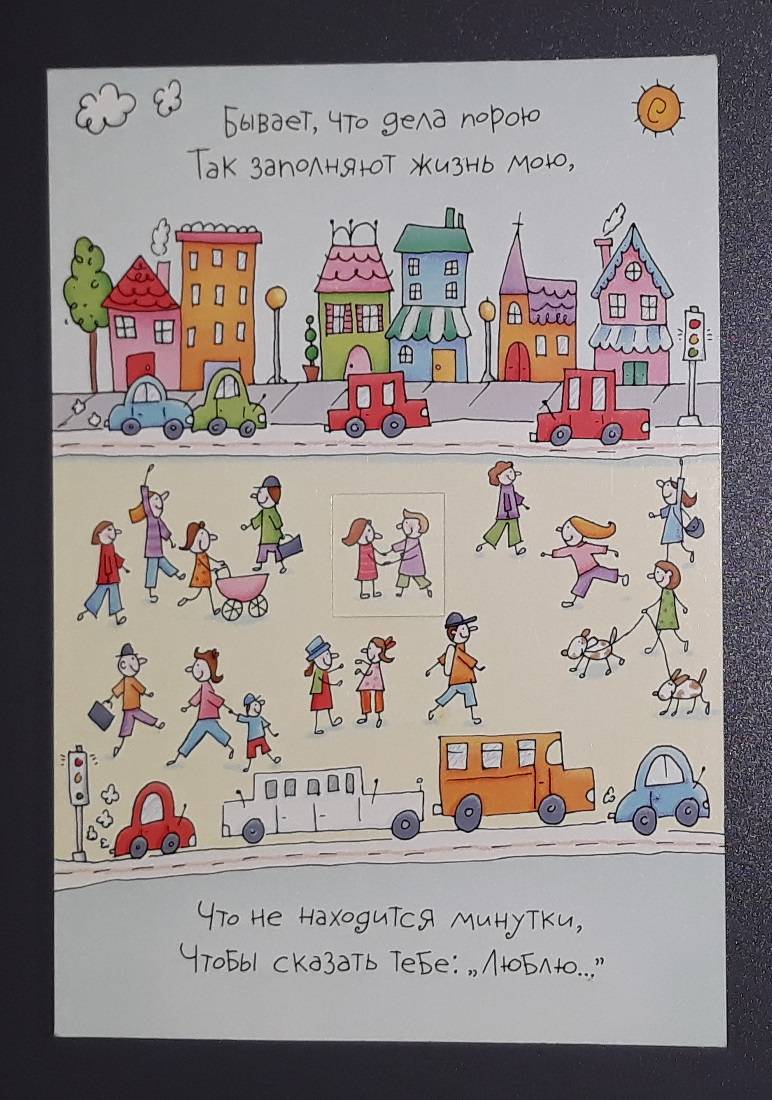 Бывает, что дела порою
Так заполняют жизнь мою,
Что не находится минутки,
Чтобы сказать тебе: „Люблю..."